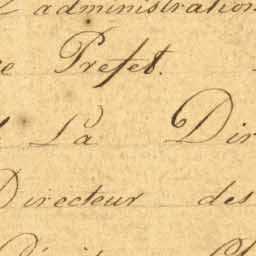 administration
e Prefet.
La Dir
Directeur des